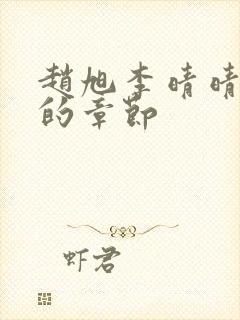 趙旭李晴晴
的章節
虾君